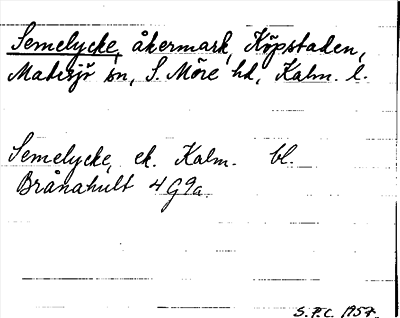 Semelycke, åkermark, Köpstaden,
Madesjö sn, S. Möre hd, Kalm. l.
Semelycke, ek. Kalm. bl.
Brånahult 4G9a.
S.F.C. 1957.